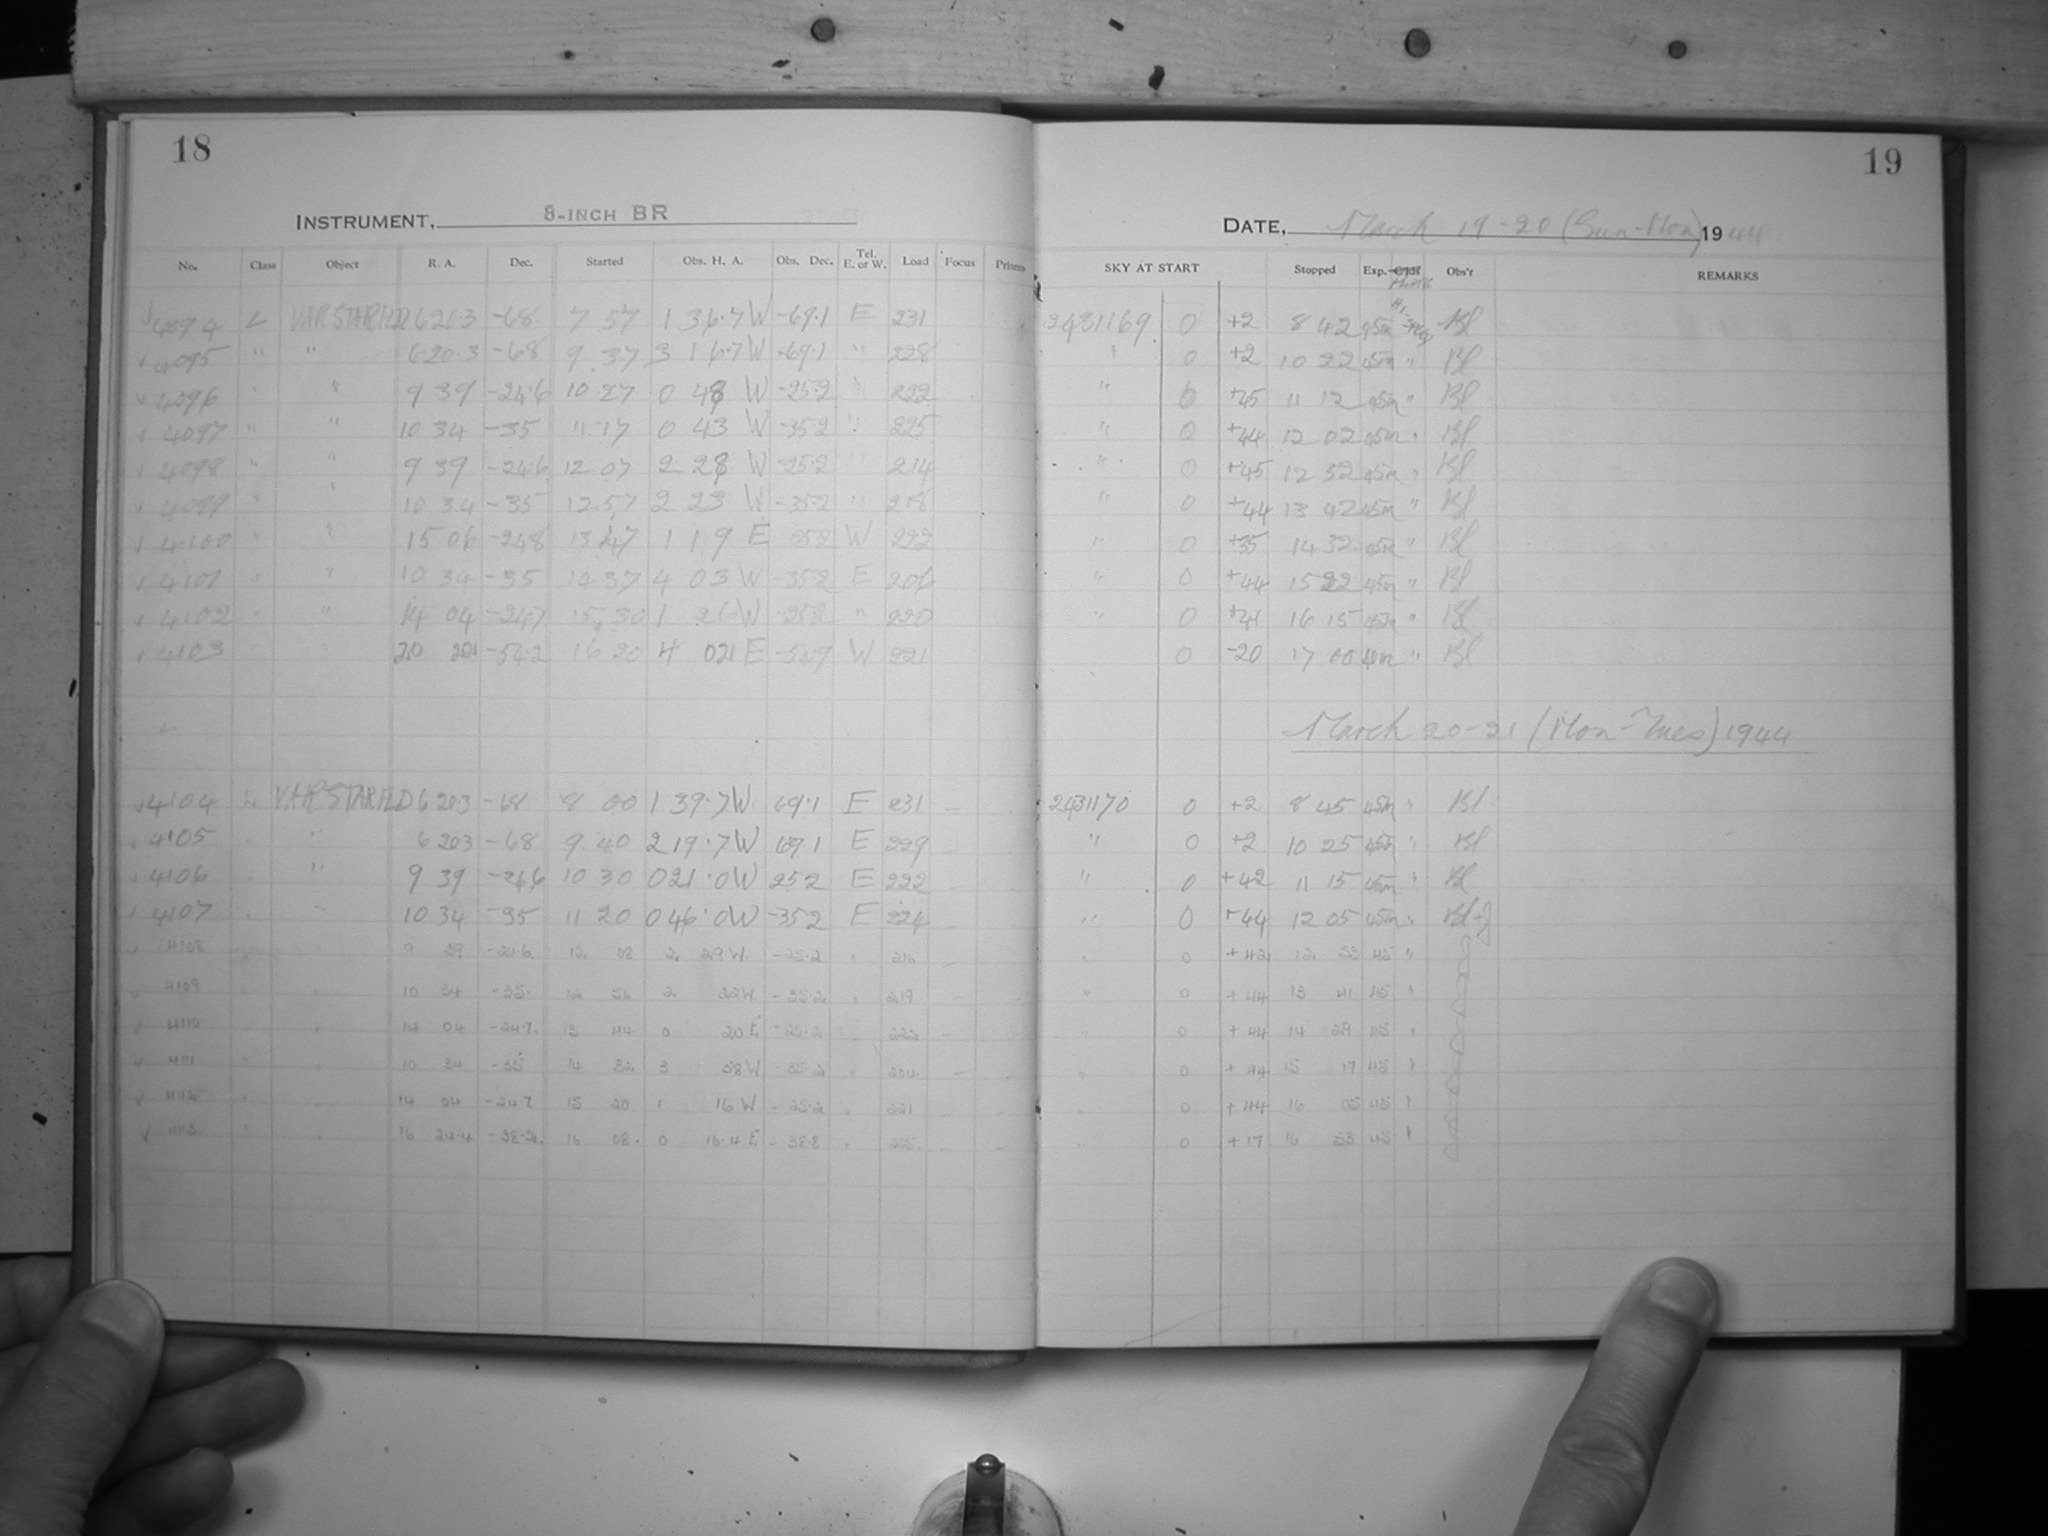 18
INSTRUMENT, 8-INCH BR
No. Class Object R. A. Dec. Started Obs. H. A. Obs. Dec. Tel. E. or W. Load Focus Prisms
4094 L VAR STAR FLD 6 20.3 -68 7 57 1 36.7 W -69.1 E 231
4095 " " 6 20.3 -68 9 37 3 16.7 W -69.1 " 228
4096 " " 9 39 -24.6 10 27 0 48 W -25.2 " 222
4097 " " 10 34 -35 11 17 0 43 W -35.2 " 225
4098 " " 9 39 -24.6 12 07 2 28 W -25.2 " 214
4099 " " 10 34 -35 12 57 2 23 W -35.2 "
4100 " " 15 06 -24.8 13 47 1 19 E -25.2 W 222
4101 " " 10 34 -35 14 37 4 03 W -35.2 E 206
4102 " " 14 04 -24.7 15 30 1 W -25.2 " 220
4103 20 -54.2 16 20 4 021 E -54.9 W 221
4104 L VAR STAR FLD 6 20.3 -68 8 00 1 39.7 W 69.1 E 231
4105 " 6 20.3 -68 9 40 2 19.7 W 69.1 E 229
4106 " 9 39 -24.6 10 30 0 21.0 W 25.2 E 222
4107 10 34 -35 11 20 0 46.0 W -35.2 E 224
4108 9 39 -24.6 12 08 2 29 W -25.2
4109 10 34 -35 12 56 2 22 W -35.2 219
4110 14 04 -24.7 13 44 0 20 E -25.2 222
4111 10 34 -35 14 32 3 58 W -35.2 204
4112 14 04 -24.7 15 20 1 16 W -25.2 221
4113 16 24.4 -38.2 16 08 0 16.4 E -38.8
19
DATE, March 19-20 (Sun-Mon) 1944
SKY AT START Stopped Exp. Obs'r REMARKS
2431169 0 +2 8 42 45m Bl
" 0 +2 10 22 45m " Bl
" 0 +45 11 12 45m " Bl
" 0 +44 12 02 45m " Bl
" 0 +45 12 52 45m " Bl
" 0 +44 13 42 45m " Bl
" 0 +35 14 32 45m " Bl
" 0 +44 15 22 45m " Bl
" 0 +41 16 15 45m " Bl
0 -20 17 00 40m " Bl
March 20-21 (Mon-Tues) 1944
2431170 0 +2 8 45 45m " Bl
" 0 +2 10 25 45m " Bl
" 0 +42 11 15 45m " Bl
" 0 +44 12 05 45m " Bl+J
" 0 +42 12 53 45 "
" 0 +44 13 41 45 "
" 0 +44 14 29 45 "
" 0 +44 15 17 45 "
" 0 +44 16 05 45 "
" 0 +17 16 53 45 "